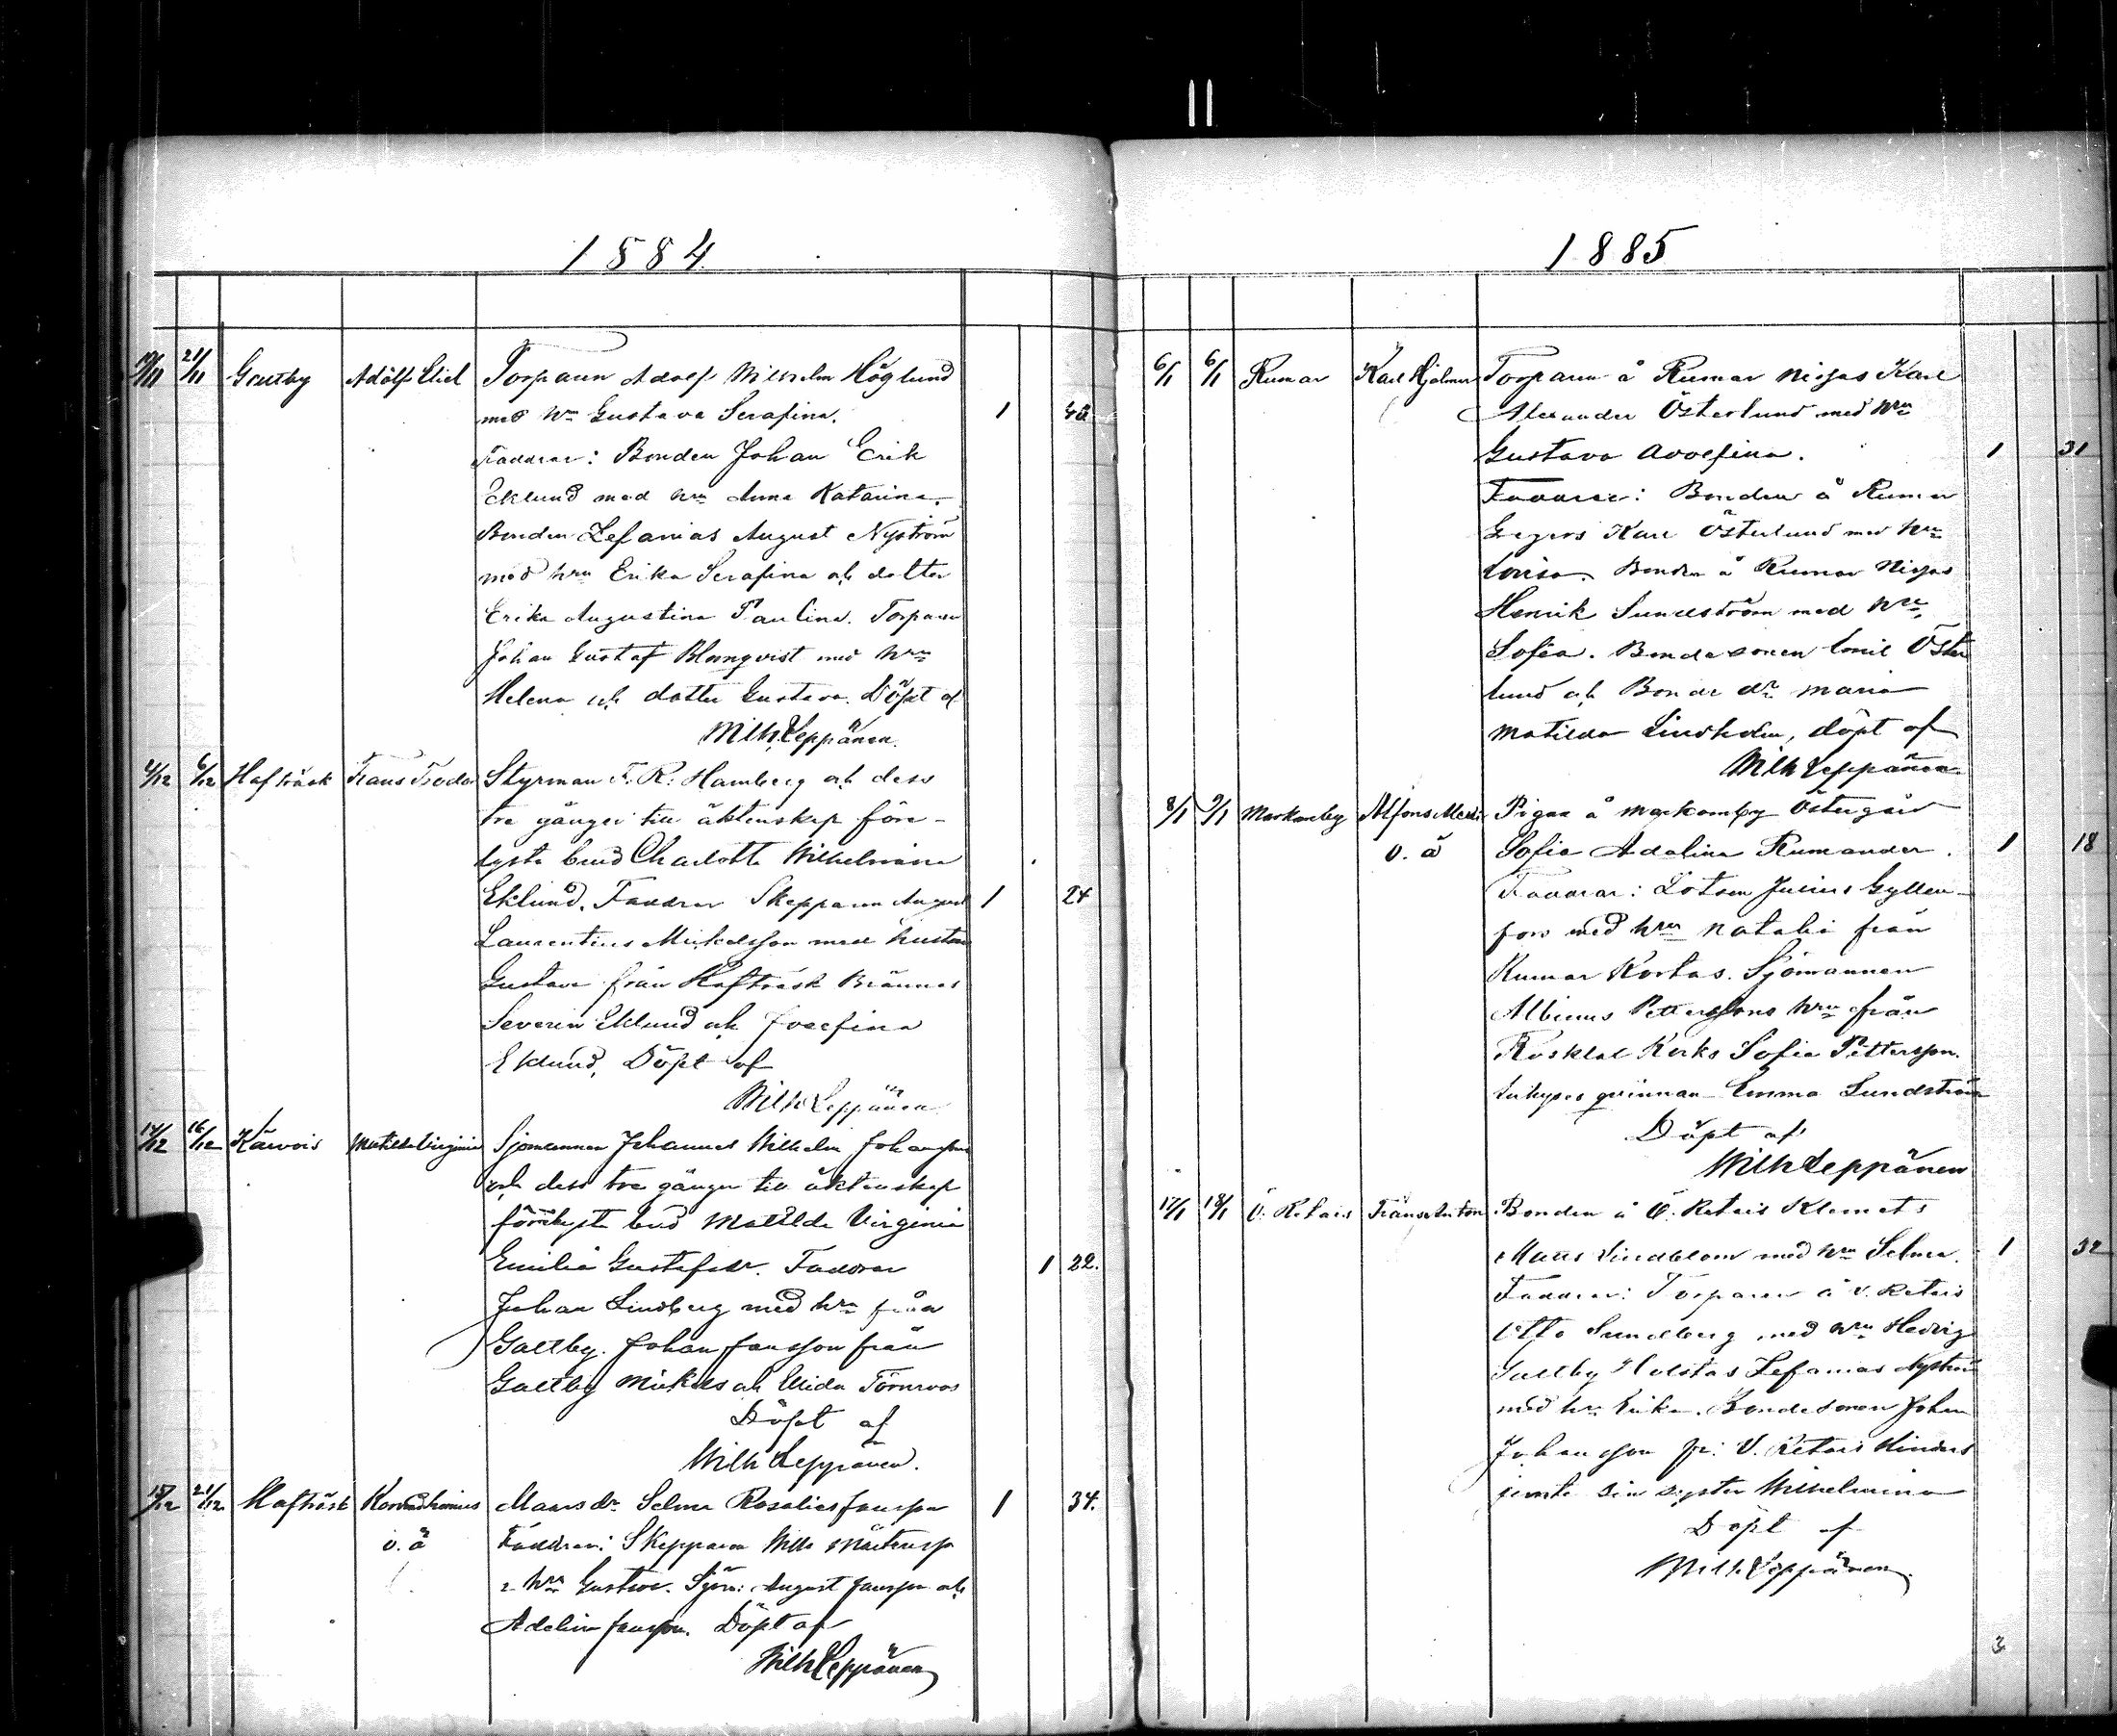 1884.
19/11 21/11 Galtby Adolf Eliel Torparen Adolf Wilhelm Höglund
med hru Gustava Serafina. 1 40
Faddrar: Bonden Johan Erik
Eklund med hru Anna Katarina.
Bonden Zefanias August Nyström
med hru Erika Serafina och dotter
Erika Augustina Paulina. Torparen
Johan Gustaf Blomqvist med hru
Helena och dotter Gustava. Döpt af
Wilh. Leppänen.
4/12 6/12 Hafträsk Frans Teodor Styrman F. R. Hamberg och dess
tre gånger till äktenskap före-
lysta brud Charlotta Wilhelmina
Eklund. Faddrar Skepparen August 1 24
Laurentius Mickelsson med hustru
Gustava från Hafträsk Brännas
Severin Eklund och Josefina
Eklund. Döpt af
Wilh Leppänen
14/12 16/12 Kärvois Matilda Virginia Sjömannen Johannes Wilhelm Johansson
och dess tre gånger till äktenskap
förelysta brud Matilda Virginia
Emilia Gustafsdr. Faddrar 1 22.
Johan Lindberg med hru från
Galtby. Johan Jansson från
Galtby Mickels och Elida Törnroos
Döpt af
Wilh Leppänen.
21/12 Hafträsk o. ä Selma Rosalia Jansson 1 34.
Faddrar: Skepparen Wilh Mårtensson
Gustava. Sjöm: August Jansson och
Adelina Jansson. Döpt af
Wilh Leppänen
1885
6/1 6/1 Rumar Karl Hjalmar Torparen å Rumar Nissas Karl
Alexander Österlund med hru
Gustava Adolfina. 1 31
Faddrar: Bonden å Rumar
Gregers Karl Österlund med hru
Lovisa. Bonden å Rumar Nissas
Henrik Sundström med hru
Sofia. Bondesonen Emil Öster
lund och Bonde dr Maria
Matilda Lindholm, döpt af
Wilh Leppänen
8/1 9/1 Markomby Alfons Pigan å Markomby Östergård
o. ä Sofia Adolina Rumander. 1 18
Faddrar: Lotsen Julius Gyllen-
fors med hru Natalia från
Rumar Kortas. Sjömannen
Albinus Petterssons hru från
Rosklal Korks Sofia Pettersson.
Inhyses qvinnan Emma Sundström
Döpt af
Wilh Leppänen
17/1 18/1 Ö. Retais Frans Anton Bonden å Ö. Retais Klemets
Mats Lindblom med hru Selma. 1 32
Faddrar: Torparen å V. Retais
Otto Sundberg med hru Hedvig
Galtby Holstas Zefanias Nyström
med hru Erika. Bondesonen Johan
Johansson fr: V. Retais Hindars
jemte sin syster Wilhelmina
Döpt af
Wilh. Leppänen.
3